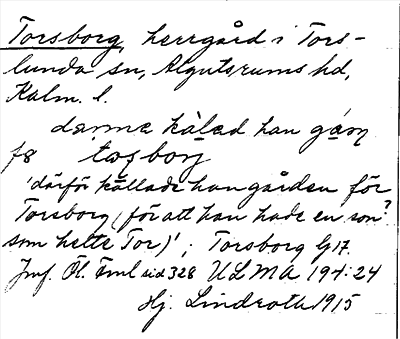 Torsborg, herrgård i Tors-
lunda sn, Algutsrums hd,
Kalm. l.
darme kàlad han gán
f8 tosborj
'därför kallade han gården för
Torsborg (för att han hade en son?
som hette Tor)'; Torsborg G17.
Jmf. Öl. Fml sid 328 ULMA 194:24
Hj. Lindroth 1915